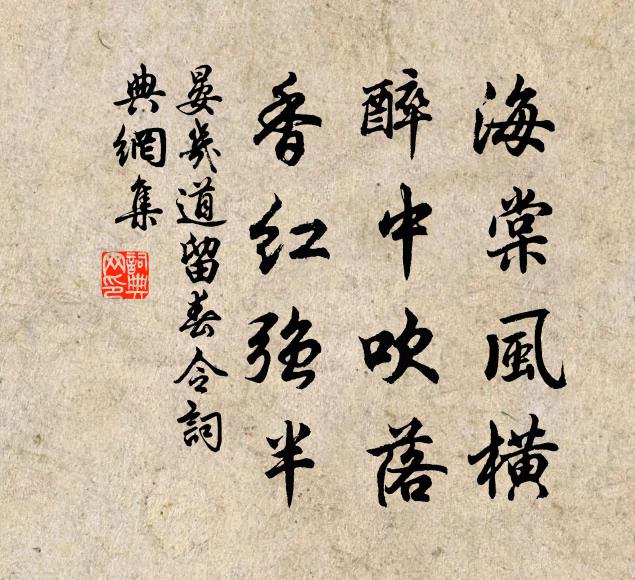 海棠風橫
醉中吹落
香紅強半
晏幾道留春令詞
典網集
詞典
網印